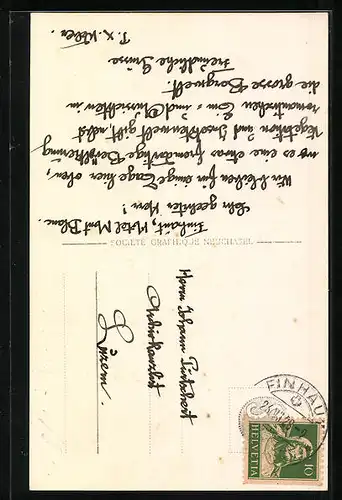 Finhaut, Hotel Mont Blanc.
Sehr geehrter Herr!
Wir bleiben für einige Tage hier oben,
wo es eine etwas fremdartige Bevölkerung
Vegetation und Insektenwelt gibt, nebst
romantischen Ein- und Aussichten in
die grosse Bergwelt.
Freundliche Grüsse
SOCIÉTÉ GRAPHIQUE NEUCHATEL
Herrn Johann
Luzern.
FINHAU
HELVETIA
10